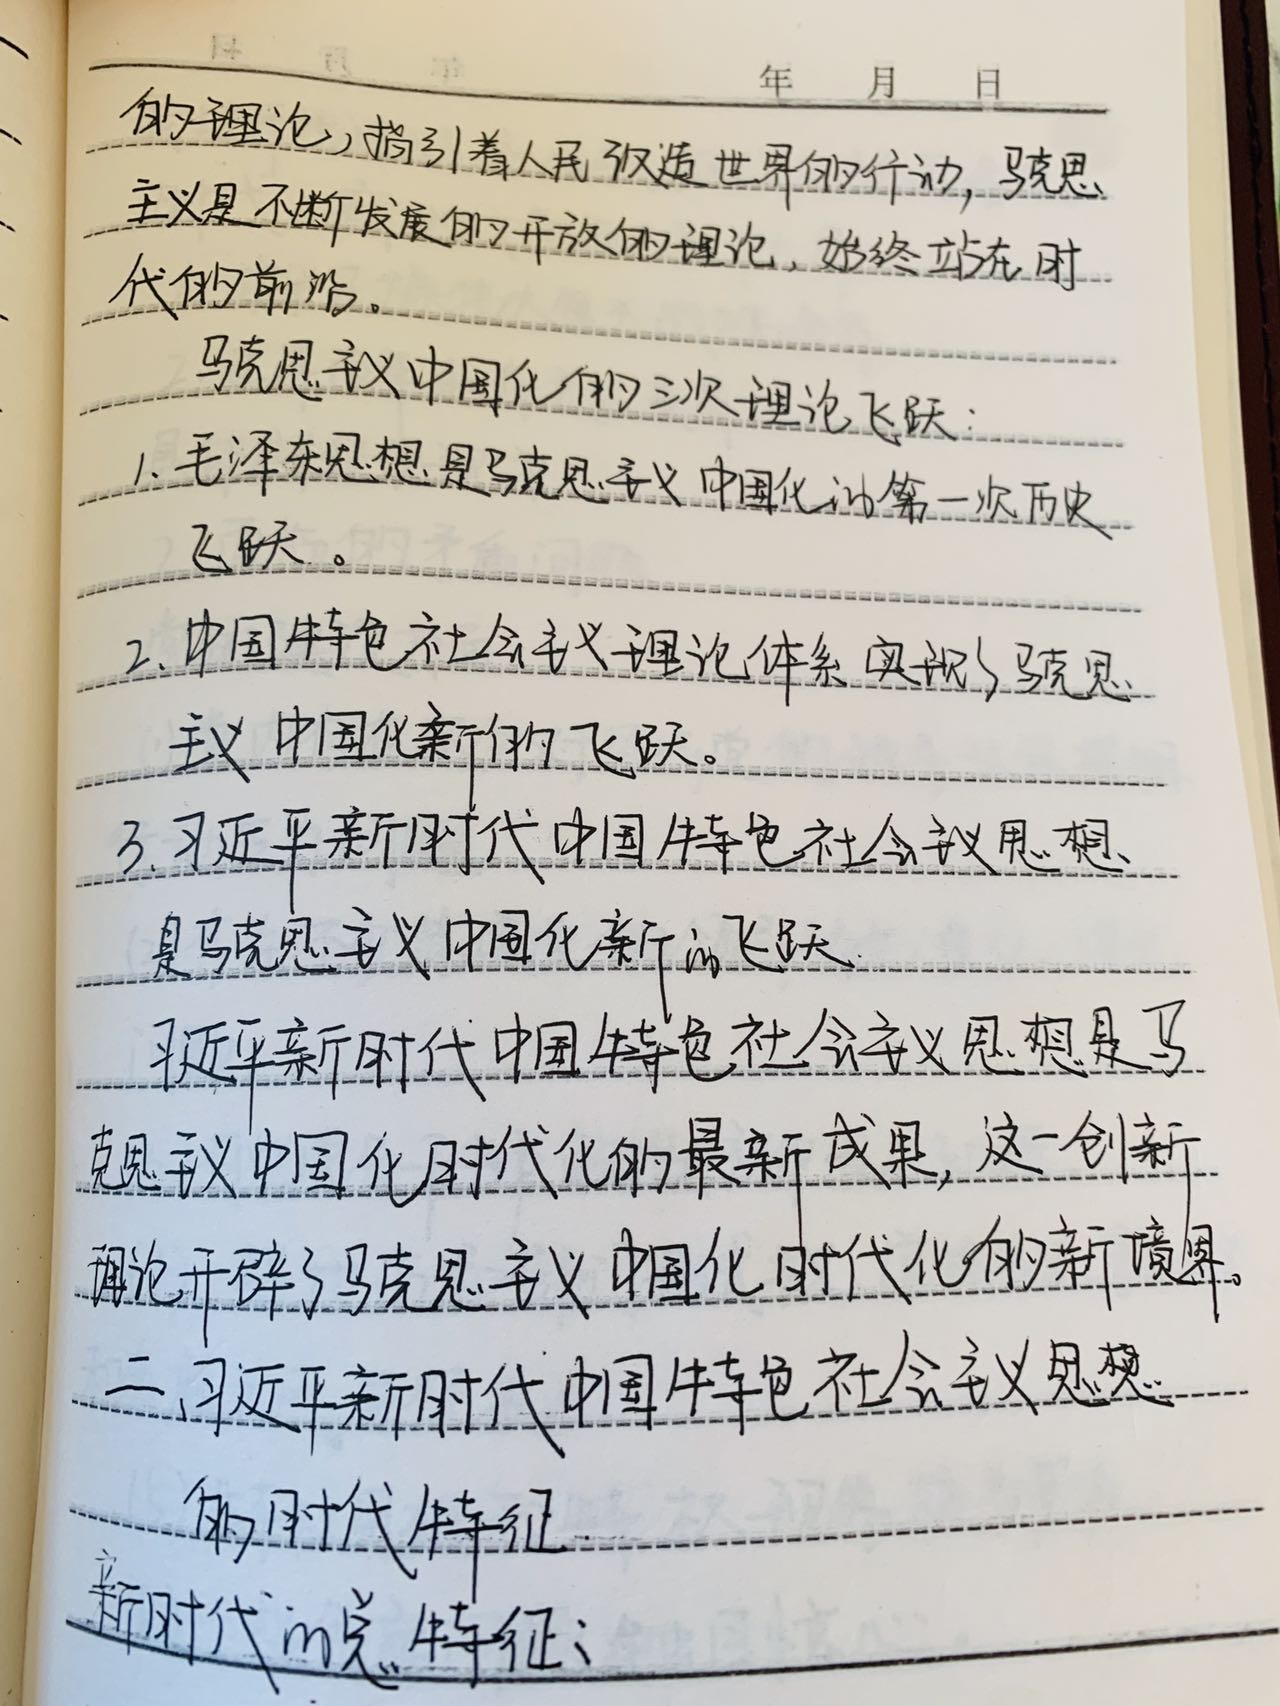 年 月 日
的理论,指引着人民改造世界的行动,马克思
主义是不断发展的开放的理论,始终站在时
代的前沿。
马克思主义中国化的三次理论飞跃:
1.毛泽东思想是马克思主义中国化的第一次历史
飞跃。
2.中国特色社会主义理论体系实现了马克思
主义中国化新的飞跃。
3.习近平新时代中国特色社会主义思想、
是马克思主义中国化新的飞跃.
习近平新时代中国特色社会主义思想是马
克思主义中国化时代化的最新成果,这一创新
理论开辟了马克思主义中国化时代化的新境界。
二、习近平新时代中国特色社会主义思想
的时代特征.
新时代的总特征: